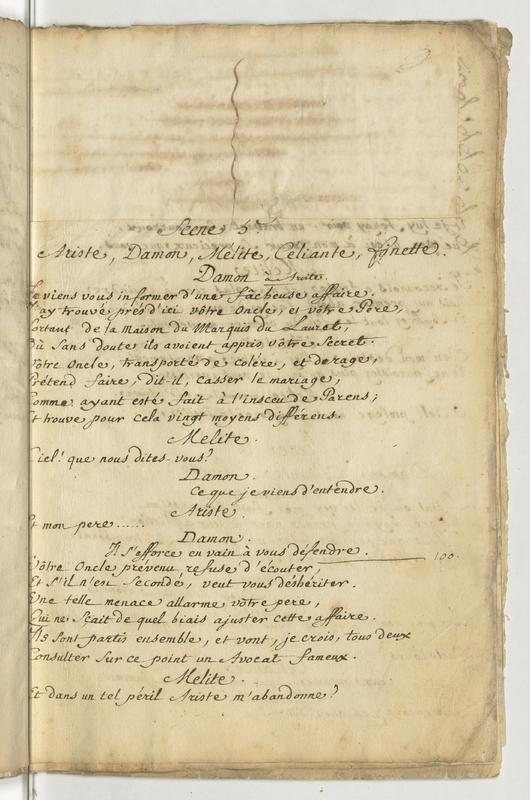 Scene 5.e
Ariste, Damon, Mélite, Céliante, Finette.
Damon à Ariste.
Je viens vous informer d'une fâcheuse affaire.
J'ay trouvé près d'ici vôtre Oncle, et vôtre Père,
Sortant de la maison du Marquis du Lauret,
Où sans doute ils avoient appris vôtre Secret.
Vôtre Oncle, transporté de colére, et de rage,
Prétend faire, dit-il, casser le mariage,
Comme ayant esté fait à l'insceu de Parens;
Et trouve pour cela vingt moyens différens.
Melite.
Ciel! que nous dites-vous?
Damon.
Ce que je viens d'entendre.
Ariste.
Et mon pere......
Damon.
Il s'efforce en vain à vous défendre. 100.
Vôtre Oncle prévenu refuse d'écouter,
Et s'il n'est secondé, veut vous deshériter.
Une telle menace allarme vôtre pere,
Qui ne sçait de quel biais ajuster cette affaire.
Ils sont partis ensemble, et vont, je crois, tous deux
Consulter sur ce point un Avocat fameux.
Melite.
Et dans un tel péril Ariste m'abandonne?